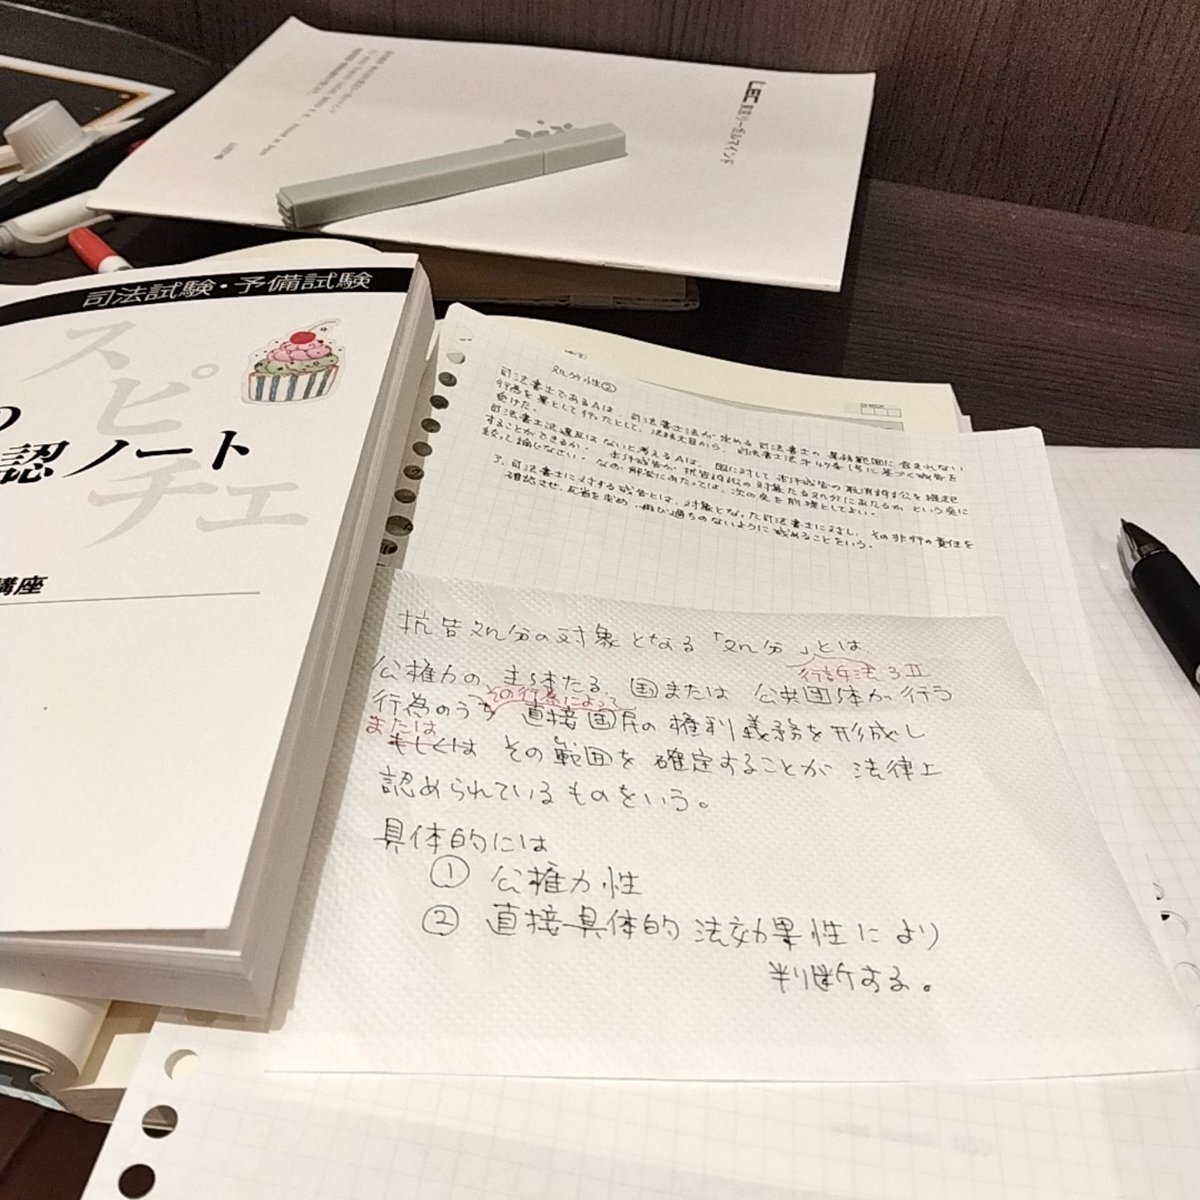 LEC東京リーガルマインド
司法試験・予備試験
スピチェ
の
認ノート
講座
処分性②
司法書士であるAは、司法書士法が定める司法書士の業務範囲に含まれない
行為を業として行ったとして、法務大臣から、司法書士法第47条1号に基づく戒告を
受けた。
司法書士法違反はないと考えるAは、国に対して本件戒告の取消訴訟を提起
することができるか。本件戒告が抗告訴訟の対象たる処分にあたるかという点に
絞って論じなさい。なお、解答にあたっては、次の点を前提としてよい。
ア.司法書士に対する戒告とは、対象となった司法書士に対し、その非行の責任を
確認させ、反省を求め、再び過ちのないように戒めることをいう。
抗告処分の対象となる「処分」とは
行訴法3Ⅱ
公権力の主体たる国または公共団体が行う
その行為によって
行為のうち直接国民の権利義務を形成し
または
もしくは その範囲を確定することが法律上
認められているものをいう。
具体的には
① 公権力性
② 直接具体的法効果性により
判断する。